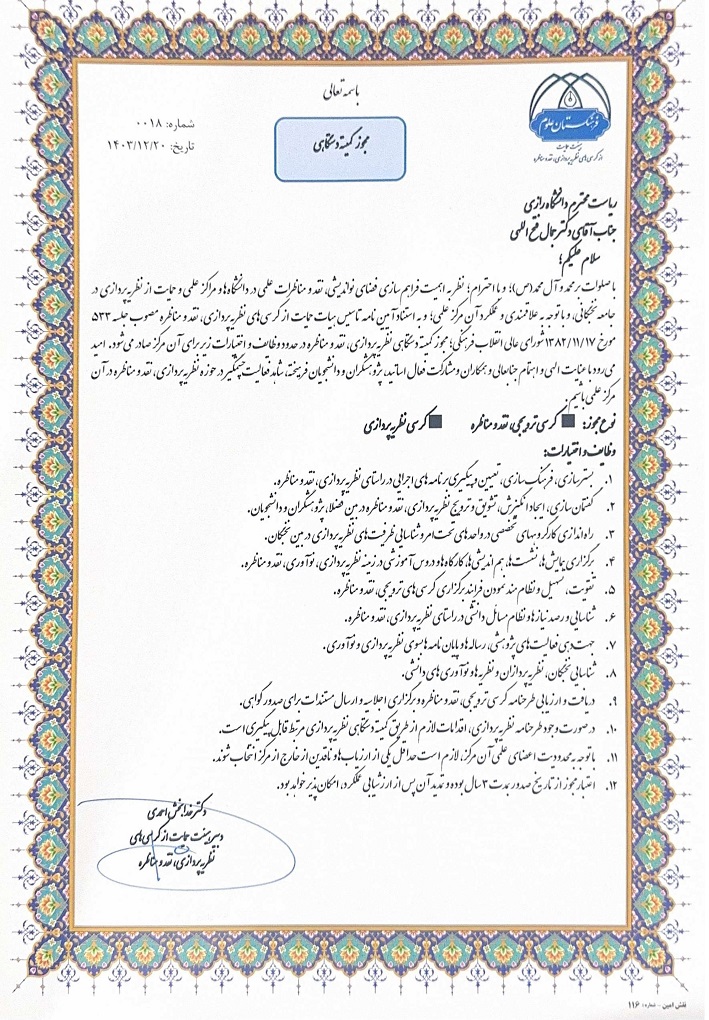 باسمه تعالی
شماره: ۰۰۱۸
تاریخ: ۱۴۰۳/۱۲/۲۰
مجوز کمیته دستگاهی
فرهنگستان علوم
هیئت حمایت
از کرسی‌های نظریه‌پردازی، نقد و مناظره
ریاست محترم دانشگاه رازی
جناب آقای دکتر جمال فتح اللهی
سلام علیکم؛
با صلوات بر محمد و آل محمد (ص)؛ و با احترام؛ نظر به اهمیت فراهم سازی فضای نواندیشی، نقد و مناظرات علمی در دانشگاه‌ها و مراکز علمی و حمایت از نظریه پردازی در
جامعه نخبگانی، و با توجه به علاقمندی و عملکرد آن مرکز علمی؛ و به استناد آیین نامه تاسیس هیات حمایت از کرسی های نظریه پردازی، نقد و مناظره مصوب جلسه ۵۳۳
مورخ ۱۳۸۲/۱۱/۱۷ شورای عالی انقلاب فرهنگی؛ مجوز کمیته دستگاهی نظریه پردازی، نقد و مناظره در حدود وظایف و اختیارات زیر برای آن مرکز صادر می شود. امید
می رود با عنایات الهی و اهتمام جنابعالی و همکاران و مشارکت فعال اساتید، پژوهشگران و دانشجویان فرهیخته، شاهد فعالیت چشمگیر در حوزه نظریه پردازی، نقد و مناظره در آن
مرکز علمی باشیم.
نوع مجوز: ■ کرسی ترویجی، نقد و مناظره ■ کرسی نظریه پردازی
وظایف و اختیارات:
۱. بسترسازی، فرهنگ سازی، تعیین و پیگیری برنامه های اجرایی در راستای نظریه پردازی، نقد و مناظره.
۲. گفتمان سازی، ایجاد انگیزش، تشویق و ترویج نظریه پردازی، نقد و مناظره در بین فضلا، پژوهشگران و دانشجویان.
۳. راه اندازی کارگروههای تخصصی در واحدهای تحت امر و شناسایی ظرفیت های نظریه پردازی در بین نخبگان.
۴. برگزاری همایش ها، نشست ها، هم اندیشی ها، کارگاه ها و دروس آموزشی در زمینه نظریه پردازی، نوآوری، نقد و مناظره.
۵. تقویت، تسهیل و نظام مند نمودن فرایند برگزاری کرسی های ترویجی، نقد و مناظره.
۶. شناسایی و رصد نیازها و نظام مسائل دانشی در راستای نظریه پردازی، نقد و مناظره.
۷. جهت دهی فعالیت های پژوهشی، رساله ها و پایان نامه ها بسوی نظریه پردازی و نوآوری.
۸. شناسایی نخبگان، نظریه پردازان و نظریه ها و نوآوری های دانشی.
۹. دریافت و ارزیابی طرحنامه کرسی ترویجی، نقد و مناظره و برگزاری اجلاسیه و ارسال مستندات برای صدور گواهی.
۱۰. در صورت وجود طرحنامه نظریه پردازی، اقدامات لازم از طریق کمیته دستگاهی نظریه پردازی مرتبط قابل پیگیری است.
۱۱. با توجه به محدودیت اعضای علمی آن مرکز، لازم است حداقل یکی از ارزیاب ها و ناقدین از خارج از مرکز انتخاب شوند.
۱۲. اعتبار مجوز از تاریخ صدور بمدت ۳ سال بوده و تمدید آن پس از ارزشیابی عملکرد، امکان پذیر خواهد بود.
دکتر خدابخش احمدی
دبیر هیئت حمایت از کرسی های
نظریه پردازی، نقد و مناظره
نقش امین - شماره: ۱۱۶